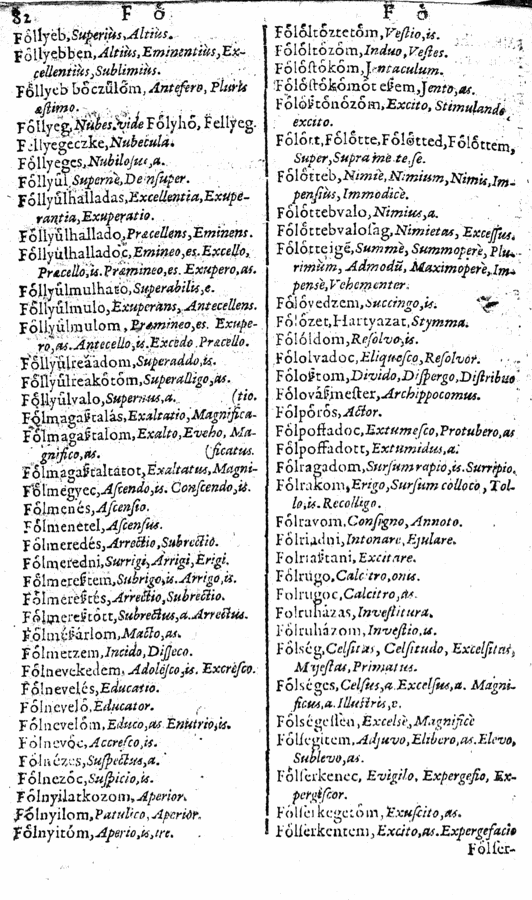 82 F ő
Főllyeb, Superiùs, Altiùs.
Főllyebben, Altiùs, Eminentiùs, Ex-
cellentiùs, Sublimiùs.
Főllyeb bőczűlőm, Antefero, Pluris
æstimo.
Főllyeg, Nubes, vide Főlyhő, Fellyeg.
Főllyegeczke, Nubecula.
Főllyeges, Nubilosus, a.
Főllyűl, Supernè, Desuper.
Főllyűlhalladas, Excellentia, Exupe-
rantia, Exuperatio.
Főllyűlhallado, Præcellens, Eminens.
Főllyűlhalladoc, Emineo, es. Excello,
Præcello, is. Præmineo, es. Exupero, as.
Főllyűlmulhato, Superabilis, e.
Főllyűlmulo, Exuperans, Antecellens.
Főllyűlmulom, Præmineo, es. Exupe-
ro, as. Antecello, is. Excedo. Præcello.
Főllyűlreàadom, Superaddo, is.
Főllyűlreakőtőm, Superalligo, as.
Főllyűlvalo, Supernus, a. (tio.
Főlmagaſtalás, Exaltatio, Magnifica-
Főlmagaſtalom, Exalto, Eveho, Ma-
gnifico, as. (ficatus.
Főlmagaſtaltatot, Exaltatus, Magni-
Főlmégyec, Ascendo, is. Conscendo, is.
Főlmenés, Ascensio.
Főlmenetel, Ascensus.
Főlmeredés, Arrectio, Subrectio.
Főlmeredni, Surrigi, Arrigi, Erigi.
Főlmereſtem, Subrigo, is. Arrigo, is.
Főlmereſtés, Arrectio, Subrectio.
Főlmereſtőtt, Subrectus, a. Arrectus.
Főlmésárlom, Macto, as.
Főlmetzem, Incido, Disseco.
Főlnevekedem, Adolesco, is. Excresco.
Főlnevelés, Educatio.
Főlnevelő, Educator.
Főlnevelőm, Educo, as Enutrio, is.
Főlnevőc, Accresco, is.
Főlnézes, Suspectus, a.
Főlnezőc, Suspicio, is.
Főlnyilatkozom, Aperior.
Főlnyilom, Patulico, Aperior.
Főlnyitóm, Aperio, is, ire.
F ő
Főlőltőztetőm, Vestio, is.
Főlőltőzőm, Induo, Vestes.
Főlőstőkőm, Jentaculum.
Főlőstőkőmőt eſem, Jento, as.
Főlőſtőnőzőm, Excito, Stimulando
excito.
Főlőtt, Főlőtte, Főlőtted, Főlőttem,
Super, Supra me te, se.
Főlőtteb, Nimiè, Nimium, Nimis, Im-
pensiùs, Immodicè.
Főlőttebvalo, Nimius, a.
Főlőttebvalosag, Nimietas, Excessus.
Főlőtteigẽ, Summè, Summoperè, Plu-
rimùm, Admodũ, Maximoperè, Im-
pensè, Vehementer.
Főlővedzem, Succingo, is.
Főlőzet, Hartyazat, Stymma.
Főlóldom, Resolvo, is.
Főlolvadoc, Eliquesco, Resolvor.
Főloſtom, Divido, Dispergo, Distribuo
Főlovásmester, Archippocomus.
Főlpőrős, Actor.
Főlpoffadoc, Extumesco, Protubero, as
Főlpoffadott, Extumidus, a.
Főlragadom, Sursum rapio, is. Surripio.
Főlrakom, Erigo, Sursum colloco, Tol-
lo, is. Recolligo.
Főlravom, Consigno, Annoto.
Főlriadni, Intonare, Ejulare.
Főlriaſtani, Excitare.
Főlrugo, Calcitro, onis.
Főlrugoc, Calcitro, as.
Főlruházas, Investitura.
Főlruházom, Investio, is.
Főlség, Celsitas, Celsitudo, Excelsitas,
Majestas, Primatus.
Főlséges, Celsus, a Excelsus, a. Magni-
ficus, a. Illustris, e.
Főlségessen, Excelsè, Magnificè
Főlsegitem, Adjuvo, Elibero, as. Elevo,
Sublevo, as.
Főlserkenec, Evigilo, Expergefio, Ex-
pergiscor.
Főlserkegetőm, Exuscito, as.
Főlserkentem, Excito, as. Expergefacio
Főlser-